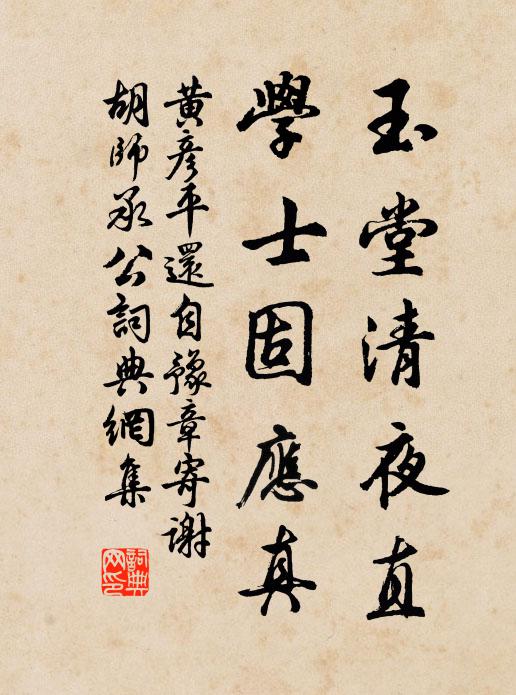 玉堂清夜直
學士固應真
黃彥平還自豫章寄謝
胡師承公詞典網集
詞典网印